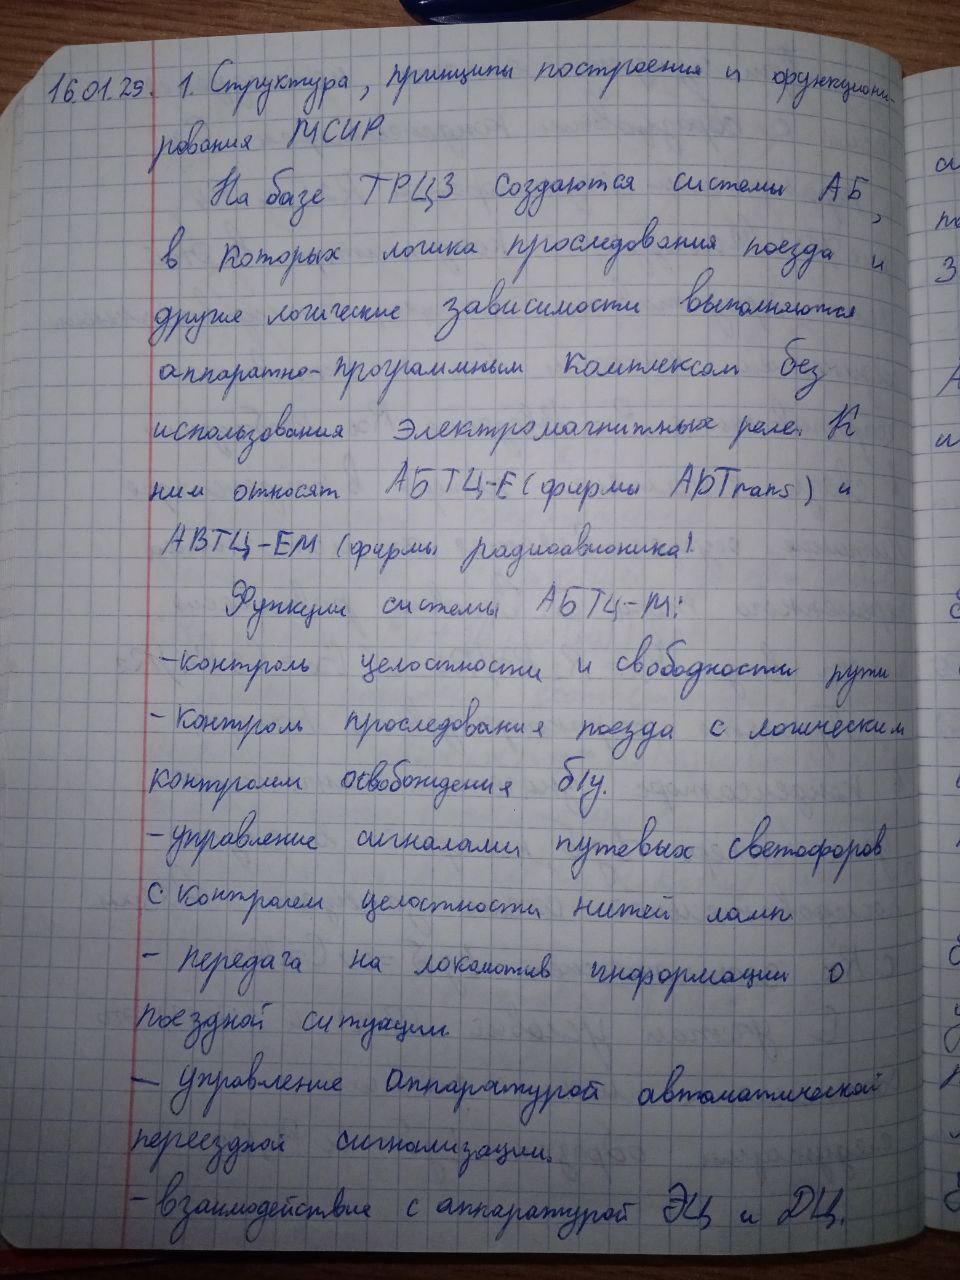 16.01.23. 1. Структура, принципы построения и функциони-
рования МСИР
На базе ТРЦ3 создаются системы АБ,
в которых логика проследования поезда и
другие логические зависимости выполняются
аппаратно-программным комплексом без
использования электромагнитных реле. К
ним относят АБТЦ-Е (фирмы АБТrans) и
АВТЦ-ЕМ (фирмы радиоавионика).
Функции системы АБТЦ-М:
-контроль целостности и свободности пути
- контроль проследования поезда с логическим
контролем освобождения б/у.
- управление сигналами путевых светофоров
с контролем целостности нитей ламп
- передача на локомотив информации о
поездной ситуации.
- управление аппаратурой автоматической
переездной сигнализации.
- взаимодействие с аппаратурой ЭЦ и ДЦ.